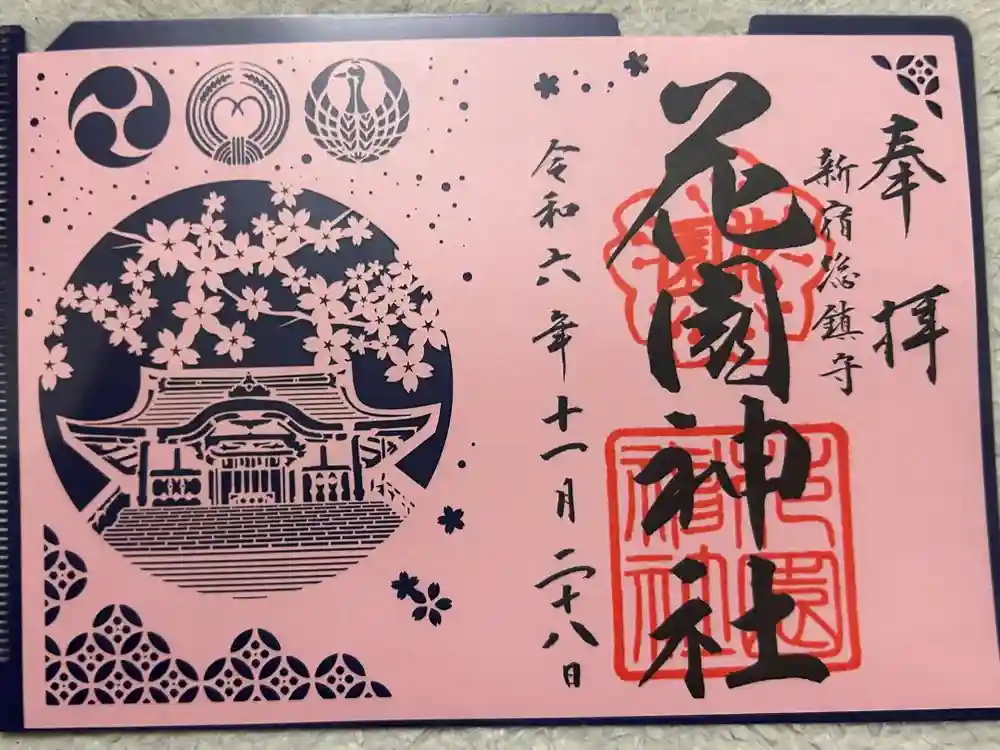 奉拝
新宿总鎮守
花園神社
令和六年十一月二十八日
花園神社